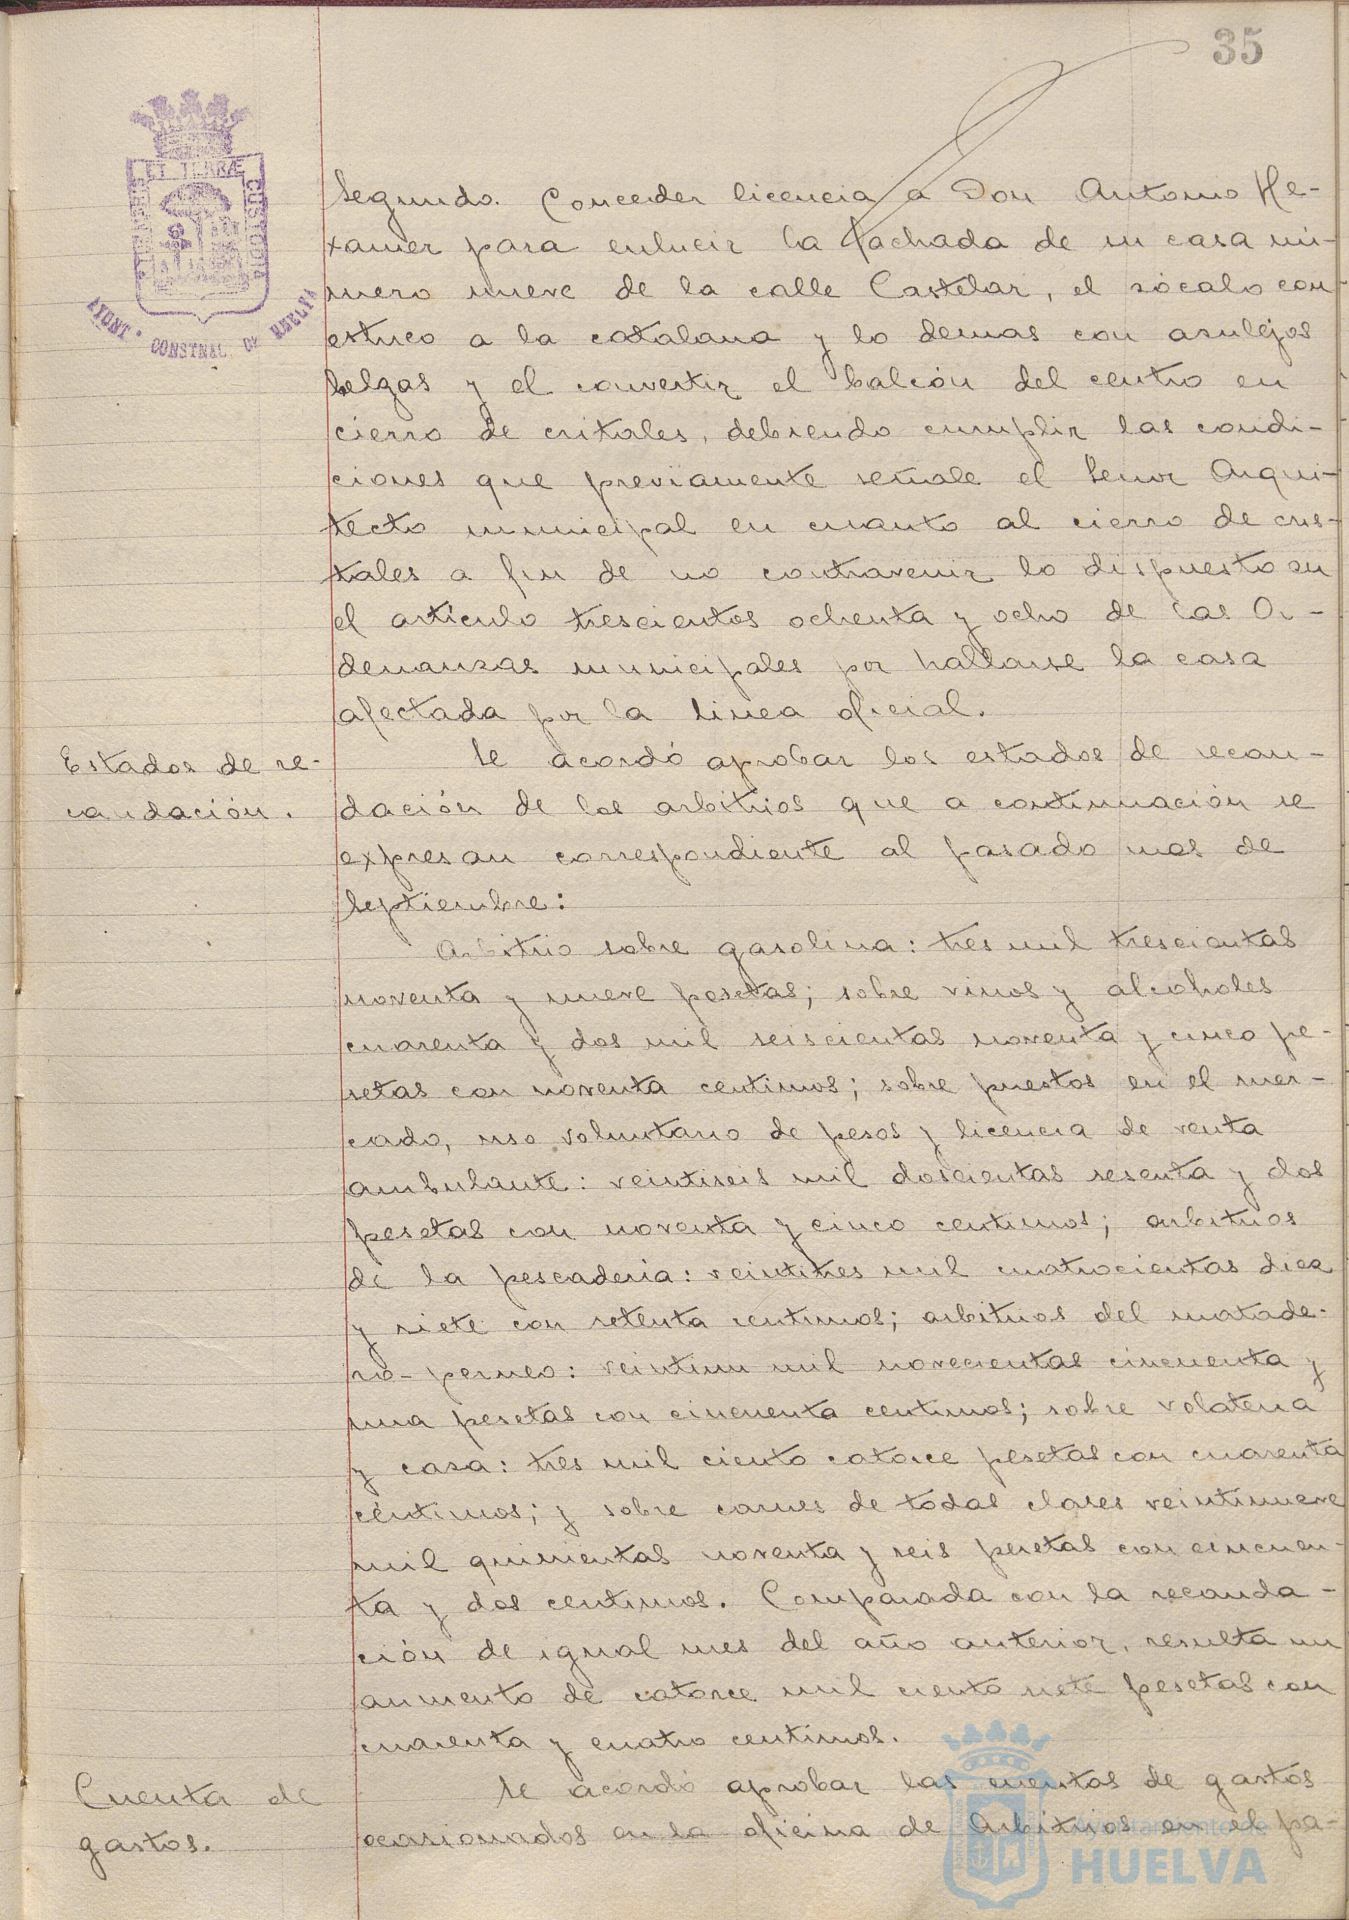 35
PORTUS MARIS ET TERRÆ CUSTODIA
AYUNT. CONSTNAL DE HUELVA
Segundo. Conceder licencia a Don Antonio He-
xamer para enlucir la fachada de su casa nú-
mero nueve de la calle Castelar, el zócalo con
estuco a la catalana y lo demas con asulejos
belgas y el convertir el balcón del centro en
cierro de critales, debiendo cumplir las condi-
ciones que previamente señale el Senor Arqui-
tecto municipal en cuanto al cierro de cris-
tales a fin de no contravenir lo dispuesto en
el artículo trescientos ochenta y ocho de las Or-
denanzas municipales por hallarse la casa
afectada por la linea oficial.
Estados de re-
caudación.
Se acordó aprobar los estados de recau-
dación de los arbitrios que a continuación se
expresan correspondiente al pasado mes de
Septiembre:
Arbitrio sobre gasolina: tres mil trescientas
noventa y nueve pesetas; sobre vinos y alcoholes
cuarenta y dos mil seiscientas noventa y cinco pe-
setas con noventa centimos; sobre puestos en el mer-
cado, uso voluntario de pesos y licencia de venta
ambulante: veintiseis mil doscientas sesenta y dos
pesetas con noventa y cinco centimos; arbitrios
de la pescadería: veintitres mil cuatrocientas diez
y siete con setenta centimos; arbitrios del matade-
ro-perneo: veintiun mil novecientas cincuenta y
una pesetas con cincuenta centimos; sobre volateria
y caza: tres mil ciento catorce pesetas con cuarenta
céntimos; y sobre carnes de todas clases veintinueve
mil quinientas noventa y seis pesetas con cincuen-
ta y dos centimos. Comparada con la recauda-
ción de igual mes del año anterior, resulta un
aumento de catorce mil ciento siete pesetas con
cuarenta y cuatro centimos.
Cuenta de
gastos.
Se acordó aprobar las cuentas de gastos
ocasionados en la oficina de Arbitrios en el pa-
Ayuntamiento de
HUELVA